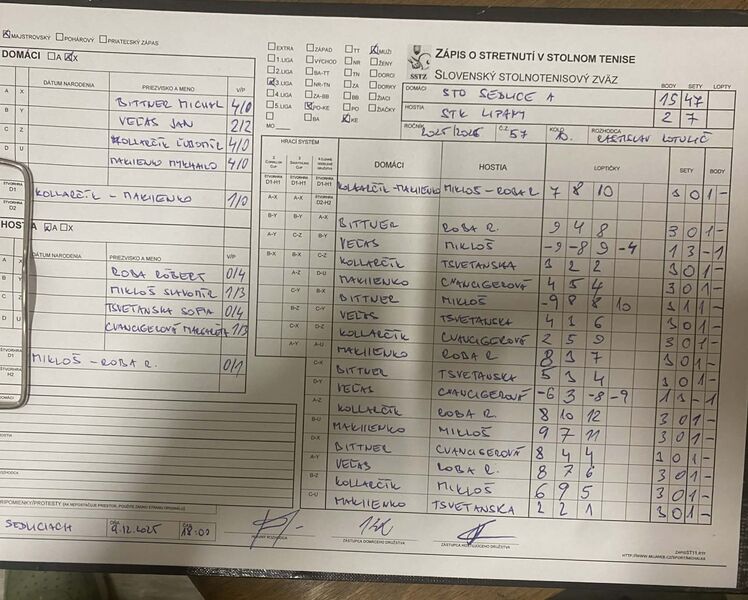 MAJSTROVSKÝ POHÁROVÝ PRIATEĽSKÝ ZÁPAS
DOMÁCI A X
DÁTUM NARODENIA PRIEZVISKO A MENO V/P
BITTNER MICHAL 4/0
VEĽAS JÁN 2/2
KOLLARČÍK ĽUBOMÍR 4/0
MAKIIENKO MYKHAILO 4/0
KOLLARČÍK - MAKIIENKO 1/0
A X
DÁTUM NARODENIA PRIEZVISKO A MENO V/P
ROBA RÓBERT 0/4
MIKLOŠ SLAVOMÍR 1/3
TSVETANSKA SOFIA 0/4
CVANCIGEROVÁ MARGARÉTA 1/3
MIKLOŠ - ROBA R. 0/1
SEDLICIACH 9.12.2025 18:00
EXTRA ZÁPAD TT MUŽI
1.LIGA VÝCHOD NR ŽENY
2.LIGA BA-TT TN DORCI
3.LIGA NR-TN ZA DORKY
4.LIGA ZA-BB BB ŽIACI
5.LIGA PO-KE PO ŽIAČKY
BA KE
MO
ZÁPIS O STRETNUTÍ V STOLNOM TENISE
SSTZ SLOVENSKÝ STOLNOTENISOVÝ ZVÄZ
BODY SETY LOPTY
DOMÁCI STO SEDLICE A 15 47
HOSTIA STK LIPANY 2 7
ROČNÍK 2025/2026 Č.Z. 57 KOLO 10. ROZHODCA
HRACÍ SYSTÉM DOMÁCI HOSTIA LOPTIČKY SETY BODY
KOLLARČÍK-MAKIIENKO MIKLOŠ-ROBA R. 7 8 10 3 0 1 -
BITTNER ROBA R. 9 4 8 3 0 1 -
VEĽAS MIKLOŠ -9 -8 9 -4 1 3 - 1
KOLLARČÍK TSVETANSKA 3 2 2 3 0 1 -
MAKIIENKO CVANCIGEROVÁ 4 5 4 3 0 1 -
BITTNER MIKLOŠ -9 8 8 10 3 1 1 -
VEĽAS TSVETANSKA 4 3 6 3 0 1 -
KOLLARČÍK CVANCIGEROVÁ 2 5 9 3 0 1 -
MAKIIENKO ROBA R. 8 3 7 3 0 1 -
BITTNER TSVETANSKA 5 3 4 3 0 1 -
VEĽAS CVANCIGEROVÁ -6 3 -8 -9 1 3 - 1
KOLLARČÍK ROBA R. 8 10 12 3 0 1 -
MAKIIENKO MIKLOŠ 9 7 11 3 0 1 -
BITTNER CVANCIGEROVÁ 8 4 4 3 0 1 -
VEĽAS ROBA R. 8 7 6 3 0 1 -
KOLLARČÍK MIKLOŠ 6 9 5 3 0 1 -
MAKIIENKO TSVETANSKA 2 2 1 3 0 1 -
ZÁSTUPCA DOMÁCEHO DRUŽSTVA ZÁSTUPCA HOSŤUJÚCEHO DRUŽSTVA